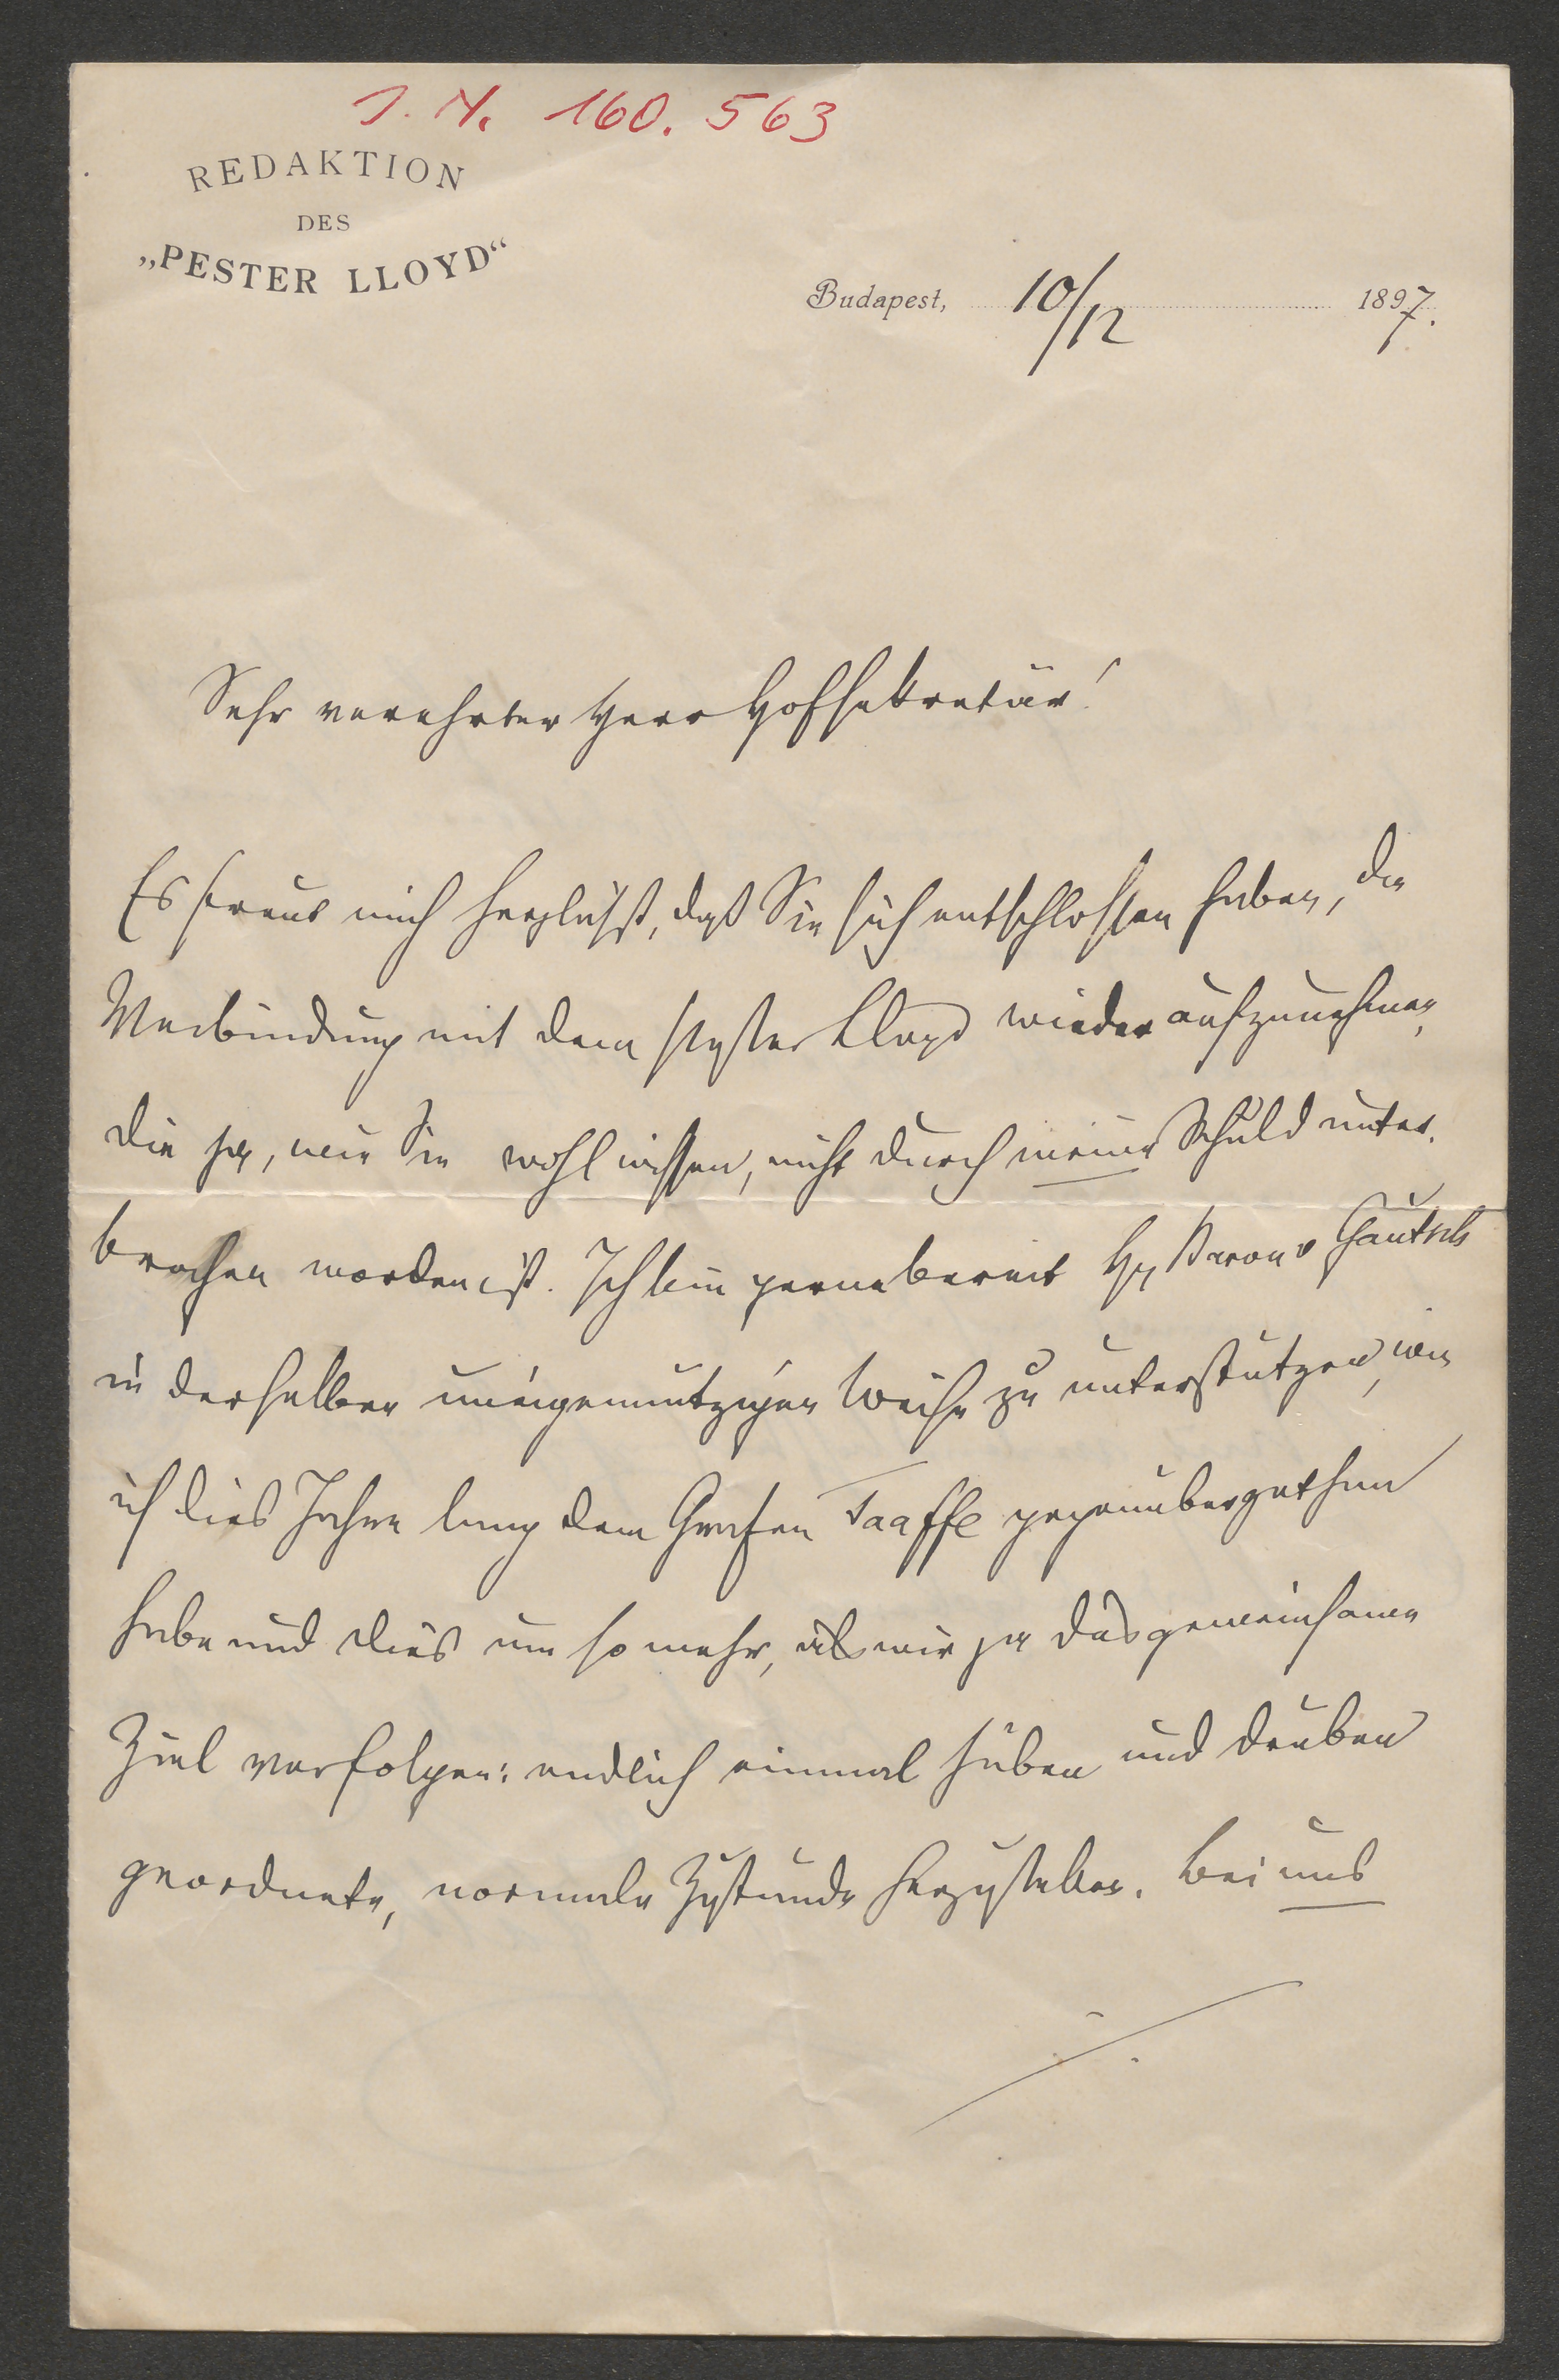 J. N. 160.563
REDAKTION
DES
„PESTER LLOYD“
Budapest, 10/12 1897.
Sehr verehrter Herr Hofsekretär!
Es freut mich herzlichst, daß Sie sich entschlossen haben, die
Verbindung mit dem Pester Lloyd wieder aufzunehmen,
die ja, wie Sie wohl wissen, nicht durch meine Schuld unter-
brochen worden ist. Ich bin gerne bereit Baron v Gautsch
in derselben uneigennützigen Weise zu unterstützen, wie
ich dies Jahre lang dem Grafen Taaffe gegenüber gethan
habe und dies um so mehr, als wir ja das gemeinsame
Ziel verfolgen: endlich einmal hüben und drüben
geordnete, normale Zustände herzustellen. Bei uns
./.